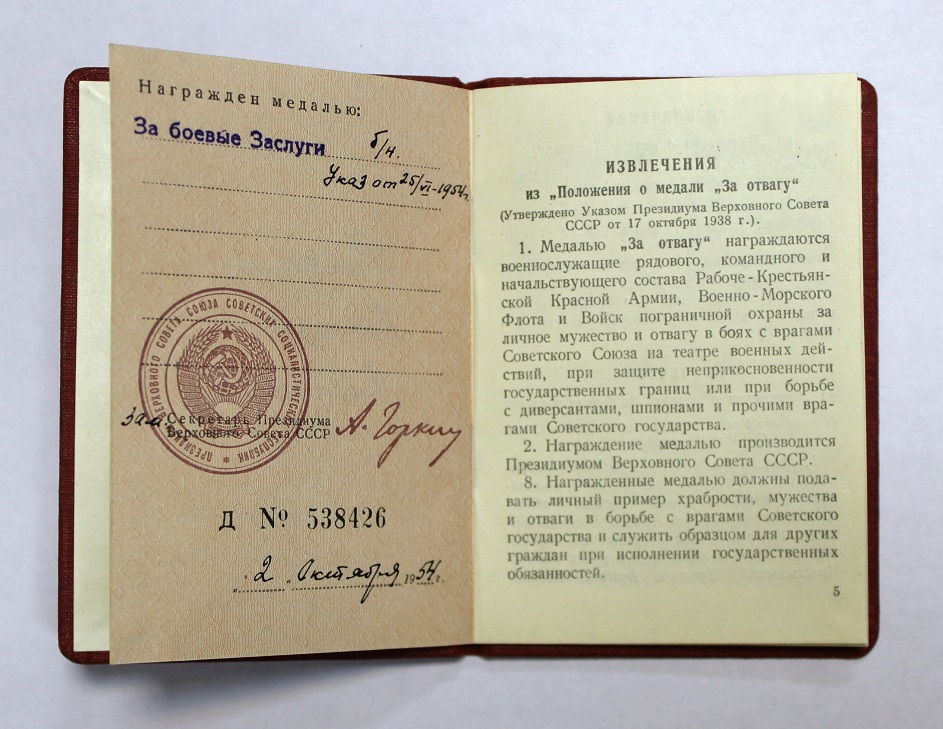 Награжден медалью:
За боевые Заслуги б/н.
Указ от 25/VI-1954г.
ПРЕЗИДИУМ ВЕРХОВНОГО СОВЕТА СОЮЗА СОВЕТСКИХ СОЦИАЛИСТИЧЕСКИХ РЕСПУБЛИК
Зам. Секретарь Президиума
Верховного Совета СССР
А. Горкин
Д № 538426
„2„ Октября 1954г.
ИЗВЛЕЧЕНИЯ
из „Положения о медали „За отвагу“
(Утверждено Указом Президиума Верховного Совета
СССР от 17 октября 1938 г.).
1. Медалью „За отвагу“ награждаются
военнослужащие рядового, командного и
начальствующего состава Рабоче-Крестьян-
ской Красной Армии, Военно-Морского
Флота и Войск пограничной охраны за
личное мужество и отвагу в боях с врагами
Советского Союза на театре военных дей-
ствий, при защите неприкосновенности
государственных границ или при борьбе
с диверсантами, шпионами и прочими вра-
гами Советского государства.
2. Награждение медалью производится
Президиумом Верховного Совета СССР.
8. Награжденные медалью должны пода-
вать личный пример храбрости, мужества
и отваги в борьбе с врагами Советского
государства и служить образцом для других
граждан при исполнении государственных
обязанностей.
5